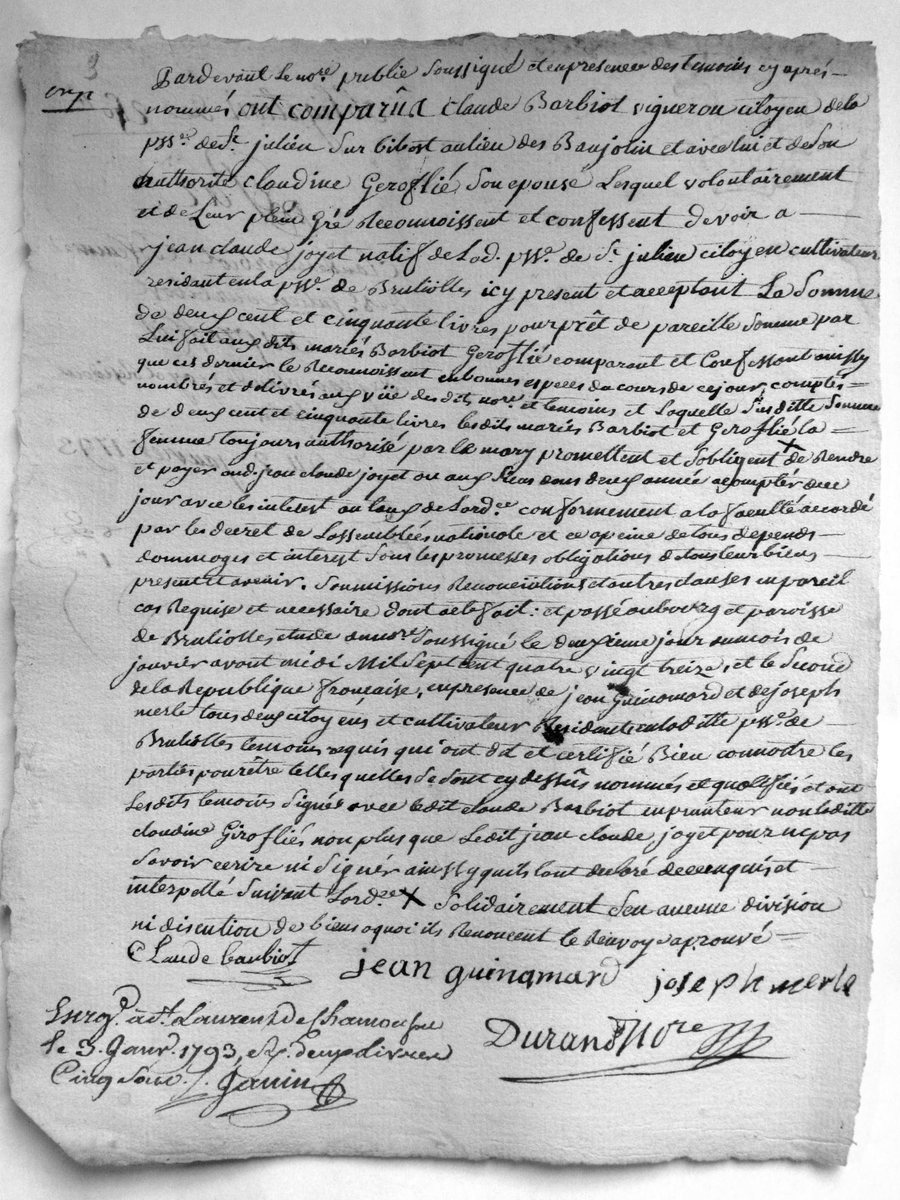 3
exp
Pardevant Le nore. public Soussigné et en presence des temoins cy après
nommés ont comparûs Claude Barbiot vigneron citoyen de la
psse. de St. julien Sur bibost au lieu des Baujolin et avec lui et de Son
authorité claudine Geroflié Son epouse Lesquel volontairement
et de Leur plein gré Reconnoissent et confessent devoir a
jean claude joyet natif de Lad. psse. de St. julien citoyen cultivateur
residant en la psse. de Brullolles icy present et acceptant La Somme
de deux cent et cinquante livres pour prêt de pareille Somme par
Lui fait aux dits mariés Barbiot Geroflié comparant et Confessant aussy
que ces dernier le Reconnoissent en bonnes especes du cours de ce jour, comptés
nombrés et délivrés aux vüe des dits nore. et temoins et Laquelle Susditte Somme
de deux cent et cinquante livres les dits mariés Barbiot et Geroflié la
femme toujours authorisé par le mary promettent et S'obligent X de Rendre
et payer aud. jean claude joyet ou aux Siens dans deux année a compter de ce
jour avec les interest au taux de Lordce. conformement a la faculté accordé
par les decret de Lassemblées nationale et ce a peine de tous depends
dommages et interest Sous les promesses obligations de tous leur biens
present et avenir. Soumissions Renonciations et autres clauses en pareil
cas Requise et necessaire dont acte fait : et passé au bourg et paroisse
de Brullolles etude du nore Soussigné le deuxieme jour du mois de
janvier avant midi Mil Sept cent quatre vingt treize, et le Second
de la Republique française, en presence de jean Guinamard et de joseph
merle tous deux citoyens et cultivateur Residants en laditte psse. de
Brullolles temoins requis qui ont dit et certifié Bien connoitre les
parties pour être telles quelles Se Sont cy dessûs nommés et qualifiés et ont
Lesdits temoins Signé avec ledit claude Barbiot emprunteur non laditte
claudine Girofliés non plus que Ledit jean claude joyet pour ne pas
Savoir ecrire ni Signér ainssy quils l'ont declaré de ce enquis et
interpellé Suivant Lordce X Solidairement S'en aucune division
ni discution de biens a quoi ils Renoncent le Renvoy approuvé
Claude barbiot
jean guinamard joseph merle
Enrgé. à St. Laurent de Chamousset
le 3. Janv. 1793,
Cinq Sous. Janin
Durand Nore